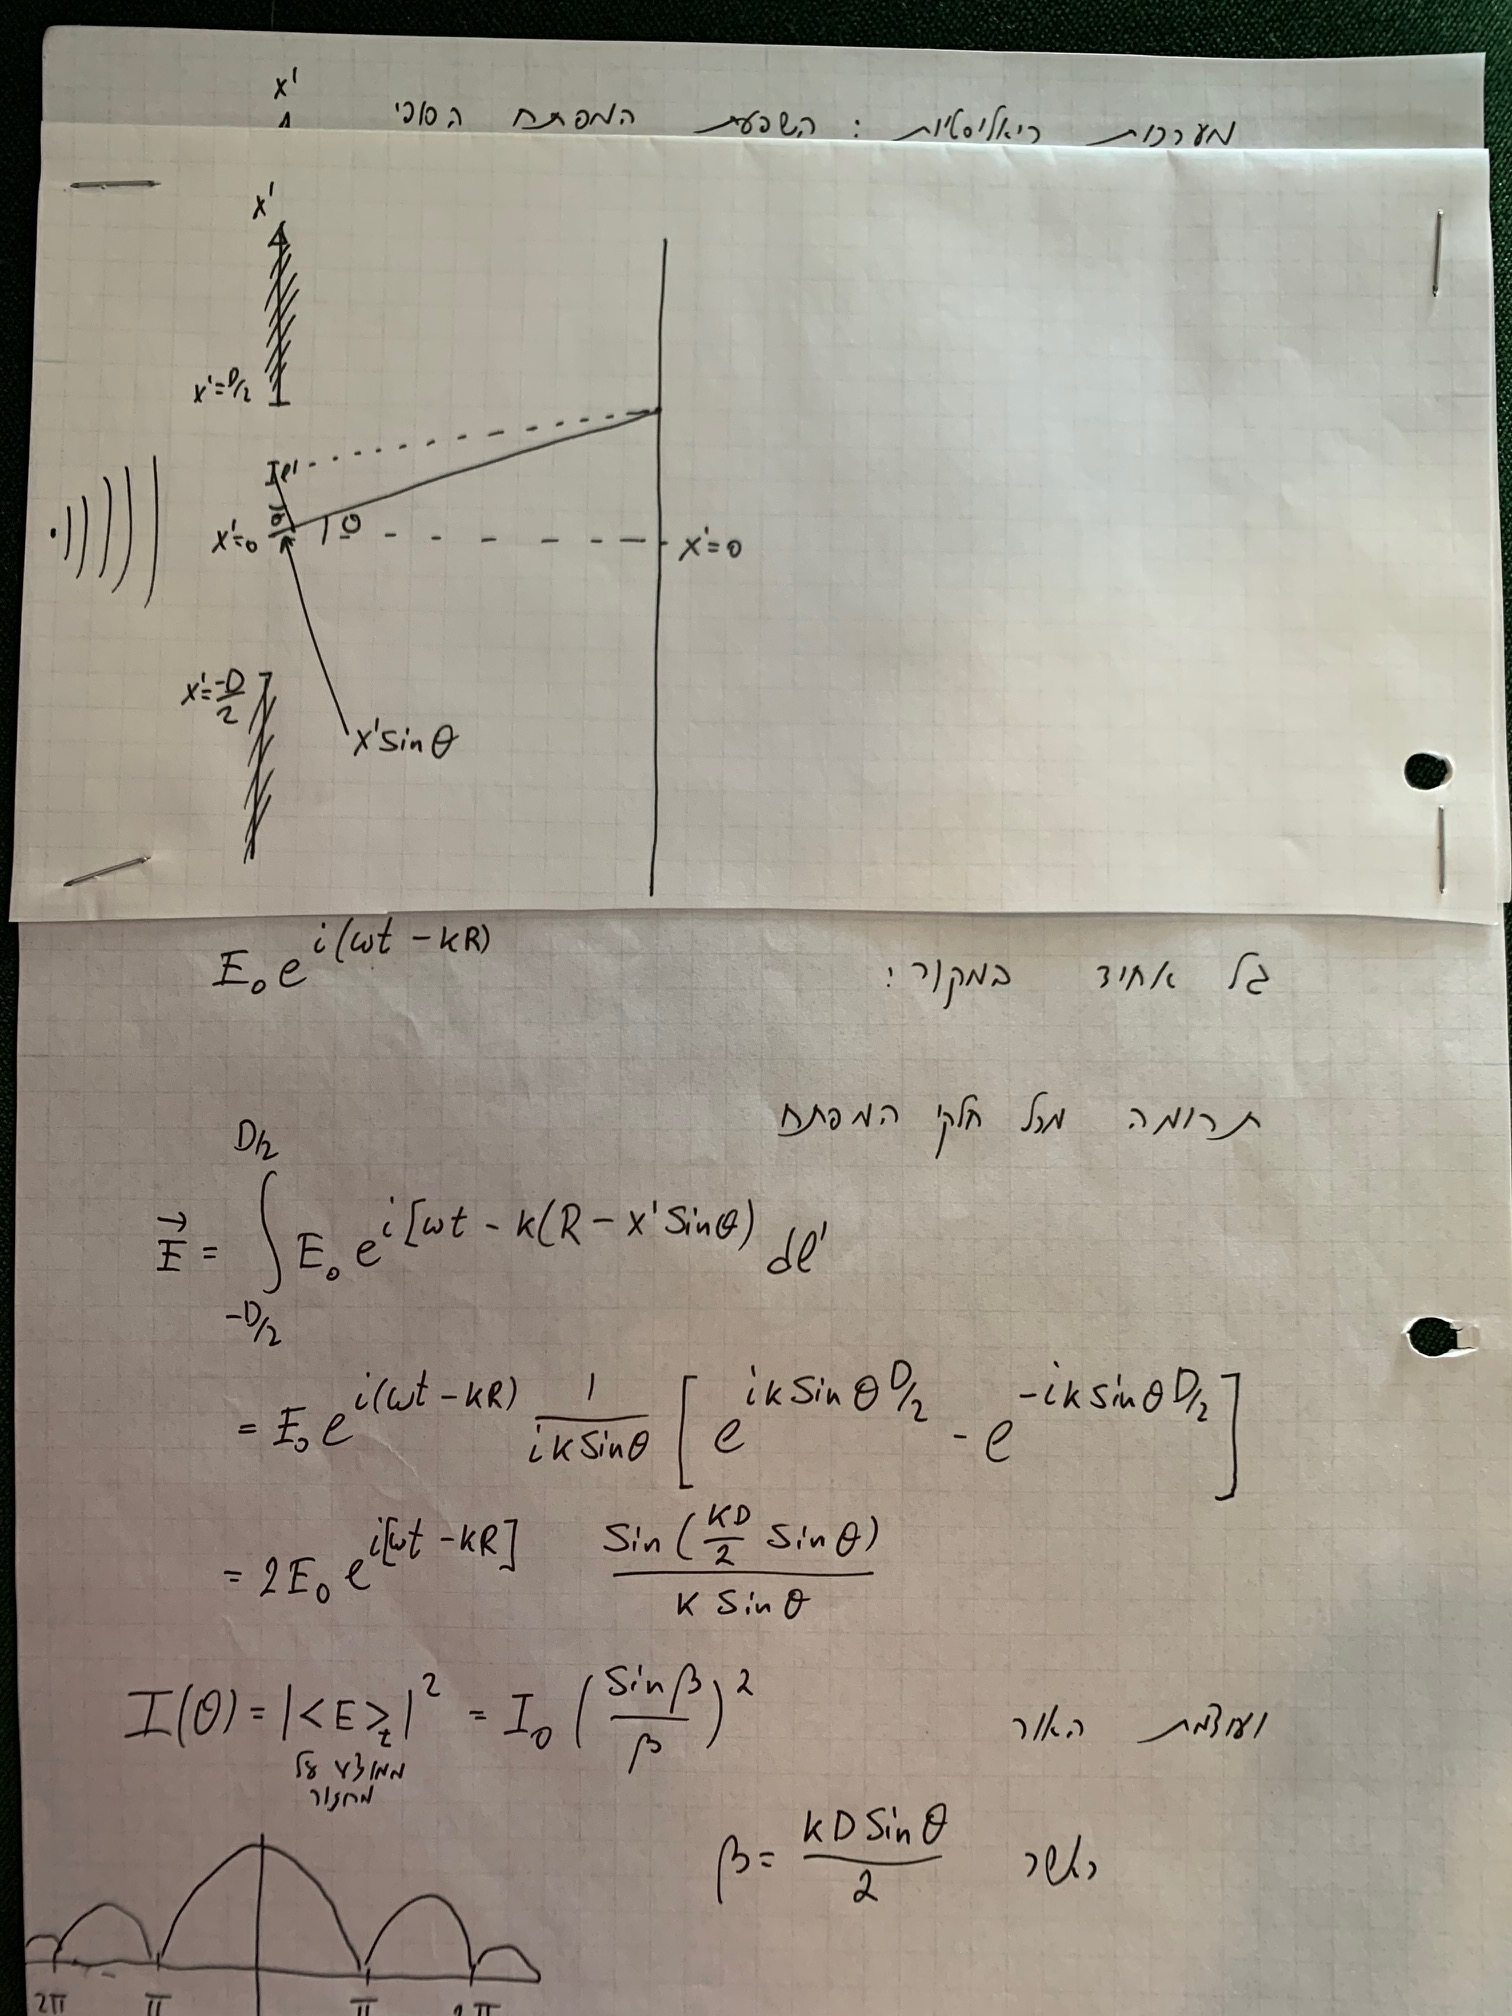 x'
מערכות ריאליסטיות : השפעת המפתח הסופי
x'
x'=D/2
dl'
θ
x'=0
θ
x'=0
x'=-D/2
x'sinθ
גל אחיד במקור: E₀e^{i(ωt-kR)}
תרומה מכל חלקי המפתח
\vec{E} = ∫_{-D/2}^{D/2} E₀e^{i[ωt-k(R-x'sinθ)} dl'
= E₀e^{i(ωt-kR)} \frac{1}{iksinθ} [e^{iksinθD/2} - e^{-iksinθD/2}]
= 2E₀e^{i[ωt-kR]} \frac{sin(\frac{kD}{2} sinθ)}{k sinθ}
ועוצמת האור I(θ) = |<E>_t|² = I₀(\frac{sinβ}{β})²
ממוצע על
מחזור
כאשר β = \frac{kD sinθ}{2}
2π π π 2π